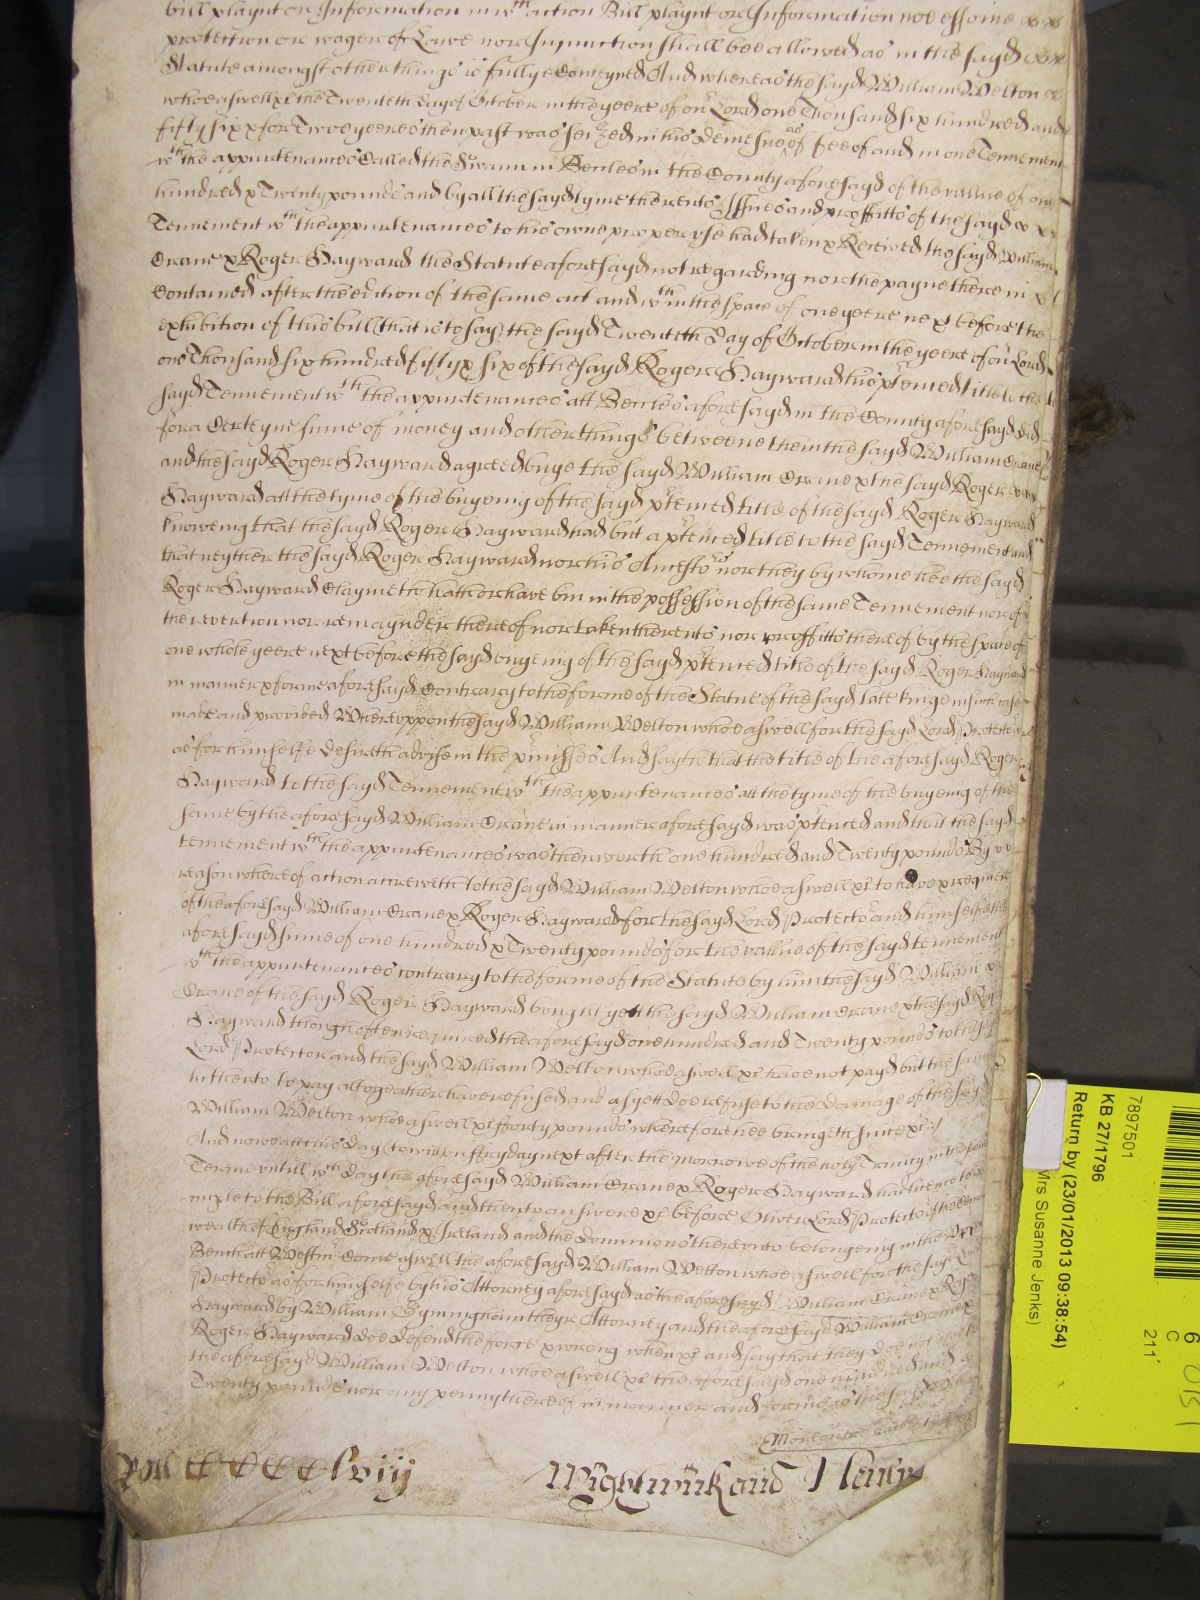 bill playnt or Informacion in wch action Bill playnt or Information noe essoine
protection or wager of Lawe nor Injunction shall bee allowed as in the sayd
Statute amongst other things is fullye Conteyned And whereas the sayd William Welton
whoe aswell &c the Twenteth day of October in the yeere of our Lord one Thousand six hundred and
fifty six & for Twoe yeeres then past was seized in his demesne as of fee of and in one Tennement
wth the appurtenances Called the Swann in Beccles in the County aforesayd of the vallue of one
hundred & Twenty pounds and by all the sayd tyme the rents Issues and proffitts of the sayd
Tennement wth the appurtenances to his owne proper use had taken & Received the sayd William
Crane & Roger Hayward the Statute aforesayd not regarding nor the payne therein
Contained after the edition of the same act and wthin the space of one yeere next before the
exhibition of this bill (that is to say) the sayd Twenteth day of October in the yeere of our Lord
one Thousand six hundred fifty & six of the sayd Roger Hayward his ptenced title to the
sayd Tennement wth the appurtenances att Beccles aforesayd in the County aforesayd did
for a Certeyne sume of money and other things betweene them the sayd William Crane
and the sayd Roger Hayward agreed buye the sayd William Crane & the sayd Roger
Hayward att the tyme of the buyeing of the sayd ptenced title of the sayd Roger Hayward
knoweing that the sayd Roger Hayward had but a ptenced title to the sayd Tennement and
that neyther the sayd Roger Hayward nor his Ancestors nor they by whome hee the sayd
Roger Hayward Claymeth hath or have bin in the possession of the same Tennement nor of
the revertion nor remaynder thereof nor taken the rents nor proffitts thereof by the space of
one whole yeere next before the sayd buyeing of the sayd ptenced title of the sayd Roger Hayward
in manner & forme aforesayd Contrary to the forme of the Statue of the sayd late kinge in such case
made and provided Whereuppon the sayd William Welton whoe aswell for the sayd Lord Protector
as for himselfe desireth advise in the pmisses And sayth that the title of the aforesayd Roger
Hayward to the sayd Tennement wth the appurtenances att the tyme of the buyeing of the
same by the aforesayd William Crane in manner aforesayd was ptenced and that the sayd
tennement wth the appurtenances was then worth one hundred and Twenty pounds By
reason whereof action accreweth to the sayd William Welton whoe aswell &c to have & require
of the aforesayd William Crane & Roger Hayward for the sayd Lord Protector and himselfe the
aforesayd sume of one hundred & Twenty pounds for the vallue of the sayd tennement
wth the appurtenances contrary to the forme of the Statute by him the sayd William
Crane of the sayd Roger Hayward bought yett the sayd William Crane & the sayd Roger
Hayward though often required the aforesayd one hundred and Twenty pounds to the sayd
Lord Protector and the sayd William Welton whoe aswell &c have not payd but the same
hitherto to pay altogeather have refused and as yett doe refuse to the damage of the sayd
William Welton whoe aswell &c fforty pounds wherefore hee bringeth suite &c
And nowe att this day (to witt) on ffryday next after the morrowe of the holy Trinity in this same
Terme untill wch day the aforesayd William Crane & Roger Hayward had licence to
imple to the Bill aforesayd and then to answere &c before Oliver Lord Protector of the Common
wealth of England Scotland & Ireland and the dominions thereunto belongeing in the Upper
Bench att Westm Come aswell the aforesayd William Welton whoe aswell for the sayd Lord
Protector as for himselfe by his Attorney aforesayd as the aforesayd William Crane & Roger
Hayward by William Symingham theyr Attorney and the aforesayd William Crane &
Roger Hayward doe defend the force & wrong when &c and say that they doe not owe to
the aforesayd William Welton whoe aswell &c the aforesayd one hundred and
Twenty pounds nor any penny thereof in manner and forme as the sayd
Roll CCCCClviij
Wightwick and
7897501
KB 27/1796
Return by (23/01/2013 09:38:54)
Mrs Susanne Jenks)
6
C
211